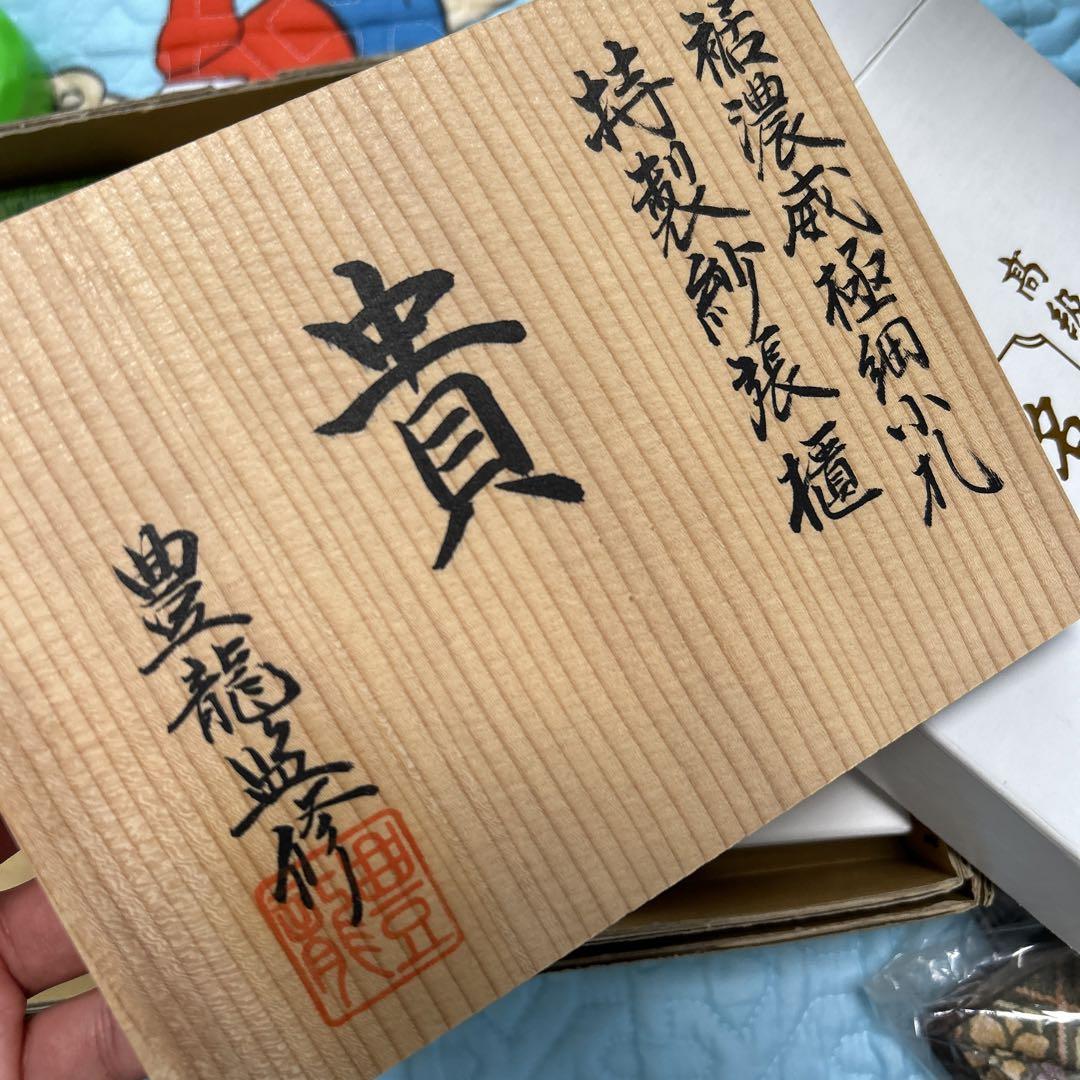 裾濃威極細小札
特製紗張櫃
貴
豊龍監修
豊龍
高級
名